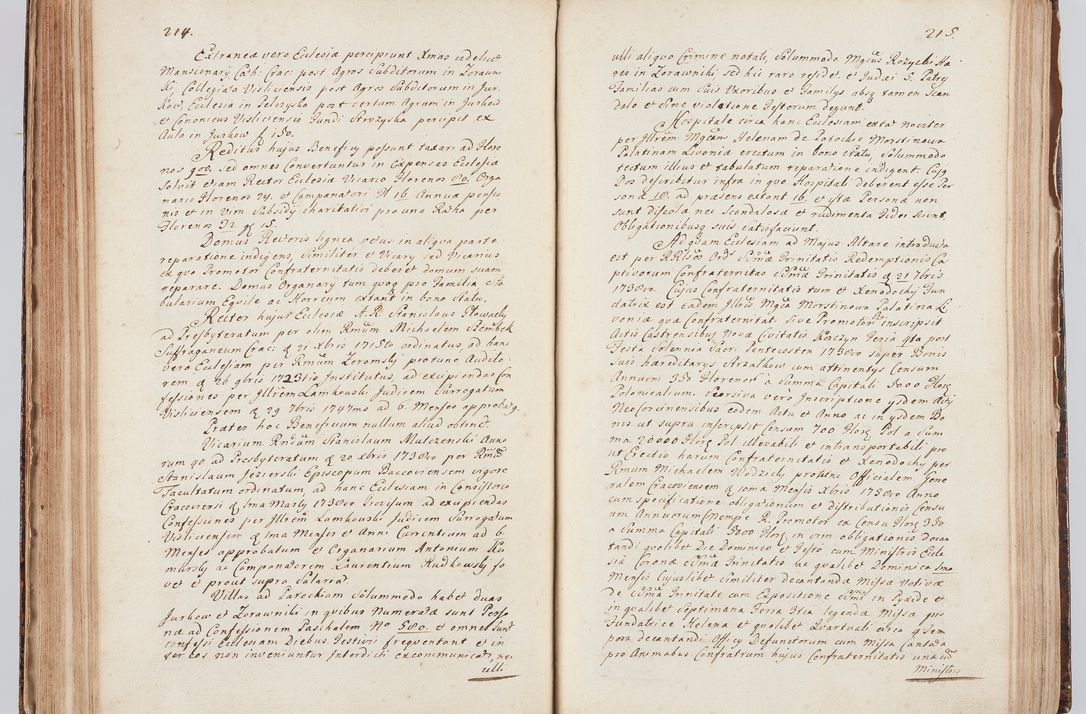 214.
Extraneæ vero Ecclesiæ percipiunt Xmas videlicet
Mansionarij Cath: Crac: post Agros Subditorum in Zoraw
ki, Collegiata Visliciensis post Agros Subditorum in Jur
kow, Ecclesia in Pelczyska post certum Agrum in Jurkow
et Canonicus Visliciensis Fundi Strożyska percipit ex
Aula in Jurkow f 150.
Reditus hujus Beneficij possunt taxari ad Flore
nos 900, sed omnes Convertuntur in Expensas Ecclesiæ
Solvit etiam Rector Ecclesiæ Vicario Florenos 80. Orga
nario Florenos 24. et Campanatori fl 16 Annuæ pensio
nis et in Vim Subsidij charitativi pro una Ratha per
Florenos 32 g 15.
Domus Rectoris lignea vetus in aliqua parte
reparatione indigens, Similiter et Vicarij sed Vicarius
ex quo Promotor Confraternitatis deberet domum suam
reparare. Domus Organarij tum quoq pro Familia Sta
bularium Equile ac Horreum extant in bono Statu.
Rector hujus Ecclesiæ A.R. Stanislaus Głowacki
ad Presbyteratum per olim Rmum Michaelem Szembek
Suffraganeum Crac: d 21 Xbris 1715to ordinatus, ad hanc
vero Ecclesiam per Rmum Zeromski pro tunc Audito
rem d 26 9bris 1723tio Institutus, ad excipiendas Con
fessiones per Illrem Lamkowski Judicem Surrogatum
Visliciensem d 29 7bris 1747mo ad 6. Menses approbatq.
Præter hoc Beneficium nullum aliud obtinet.
Vicarium Rndum Stanislaum Malczenski Anno
rum 40 ad Presbyteratum d 20 Xbris 1730vo per Rmum
Stanislaum Jezierski Episcopum Bacoviensem vigore
Facultatum ordinatum, ad hanc Ecclesiam in Consistorio
Cracoviensi d 5ma Martij 1730vo præcisum ad excipiendas
Confessiones per Illrem Lamkowski Judicem Surrogatum
Visliciensem d 5ma Mensis et Anni Currentium ad 6.
Menses approbatum et Organarium Antonium Ku
murski ac Campanatorem Laurentium Rudkowski fo
vet et prout supra Salariat.
Villas ad Parochiam Solummodo habet duas
Jurkow et Zorawniki in quibus Numeratæ sunt Perso
næ ad Confessionem Paschalem No 580. et omnes sunt
confessi Ecclesiam Diebus Festivis frequentant et in
ter eos non inveniuntur Interdicti excommunicati, ne
ulli
215.
ulli aliquo Crimine notati, Solummodo Mgcus Rożycki Hæ
res in Zorawniki sed hic raro residet et Judæi 5 Patres
Familias cum Suis Uxoribus et Famulis absq tamen Scan
dalo et Sine violatione Festorum degunt.
Hospitale circa hanc Ecclesiam extat noviter
per Illrem Mgcam Helenam de Potockie Morstinowa
Palatinam Livoniæ erectum in bono Statu, Solummodo
tectum illius et tabulatum reparatione indigent Cujq
Dos describitur infra in quo Hospitali deberent esse Per
sonæ 10. ad præsens extant 16. et istæ Personæ non
sunt Discolæ nec Scandalosæ et rudimenta Fidei sciunt
Obligationibusq suis satisfaciunt.
Ad quam Ecclesiam ad Majus Altare introducta
est per RRssos Ord SSmæ Trinitatis Redemptionis Ca
ptivorum Confraternitas SSmæ Trinitatis d 21 7bris
1730vo. Cujus Confraternitatis tum et Xenodochij Fun
datrix est eadem Illris Mgca Morstinowa Palatina Li
voniæ quæ Confraternitati Sive Promotori Ejus inscripsit
Actis Castrensibus Nova Civitatis Korczyn Feria 4ta post
Festa Solennia Sacr. Pentecosten 1730vo super Bonis
Suis hæreditarijs Strzałkow cum attinentijs Censum
Annuum 350 Florenorum a Summa Capitali 5000 Flor:
Polonicalium. Seorsiva vero Inscriptione ijsdem Actis
NeoCorcinensibus eodem Actu et Anno ac in ijsdem Bo
nis ut supra inscripsit Censum 700 Flor: Pol a Sum
ma 20000 Flor: Pol illevabili et intransportabili pro
ut Erectio harum Confraternitatis et Xenodochij per
Rmum Michaelem Wodzicki protunc Officialem Gene
ralem Cracoviensem d 10ma Mensis Xbris 1730vo Anno
cum specificatione obligationum et distributionis Censu
um Annuorum Nempe R. Promotor ex Censu Flor: 350
a Summa Capitali 5000 Flor: in orm obligationis Decan
tandi quolibet Die Dominico et Festo cum Ministris Eccle
siæ Coronæ SSmæ Trinitatis ac qualibet Dominica 1ma
Mensis Cujuslibet Similiter decantanda Missa Votiva
de SSma Trinitate cum Expositione SSmi in Pyxide et
in qualibet Septimana Feria 3tia legenda Missa pro
Fundatrice Helena et quolibet Quartuali circa 4Tem
pora decantandi Officij Defunctorum cum Missa Cantata
pro Animabus Confratrum hujus Confraternitatis una cum
Ministris